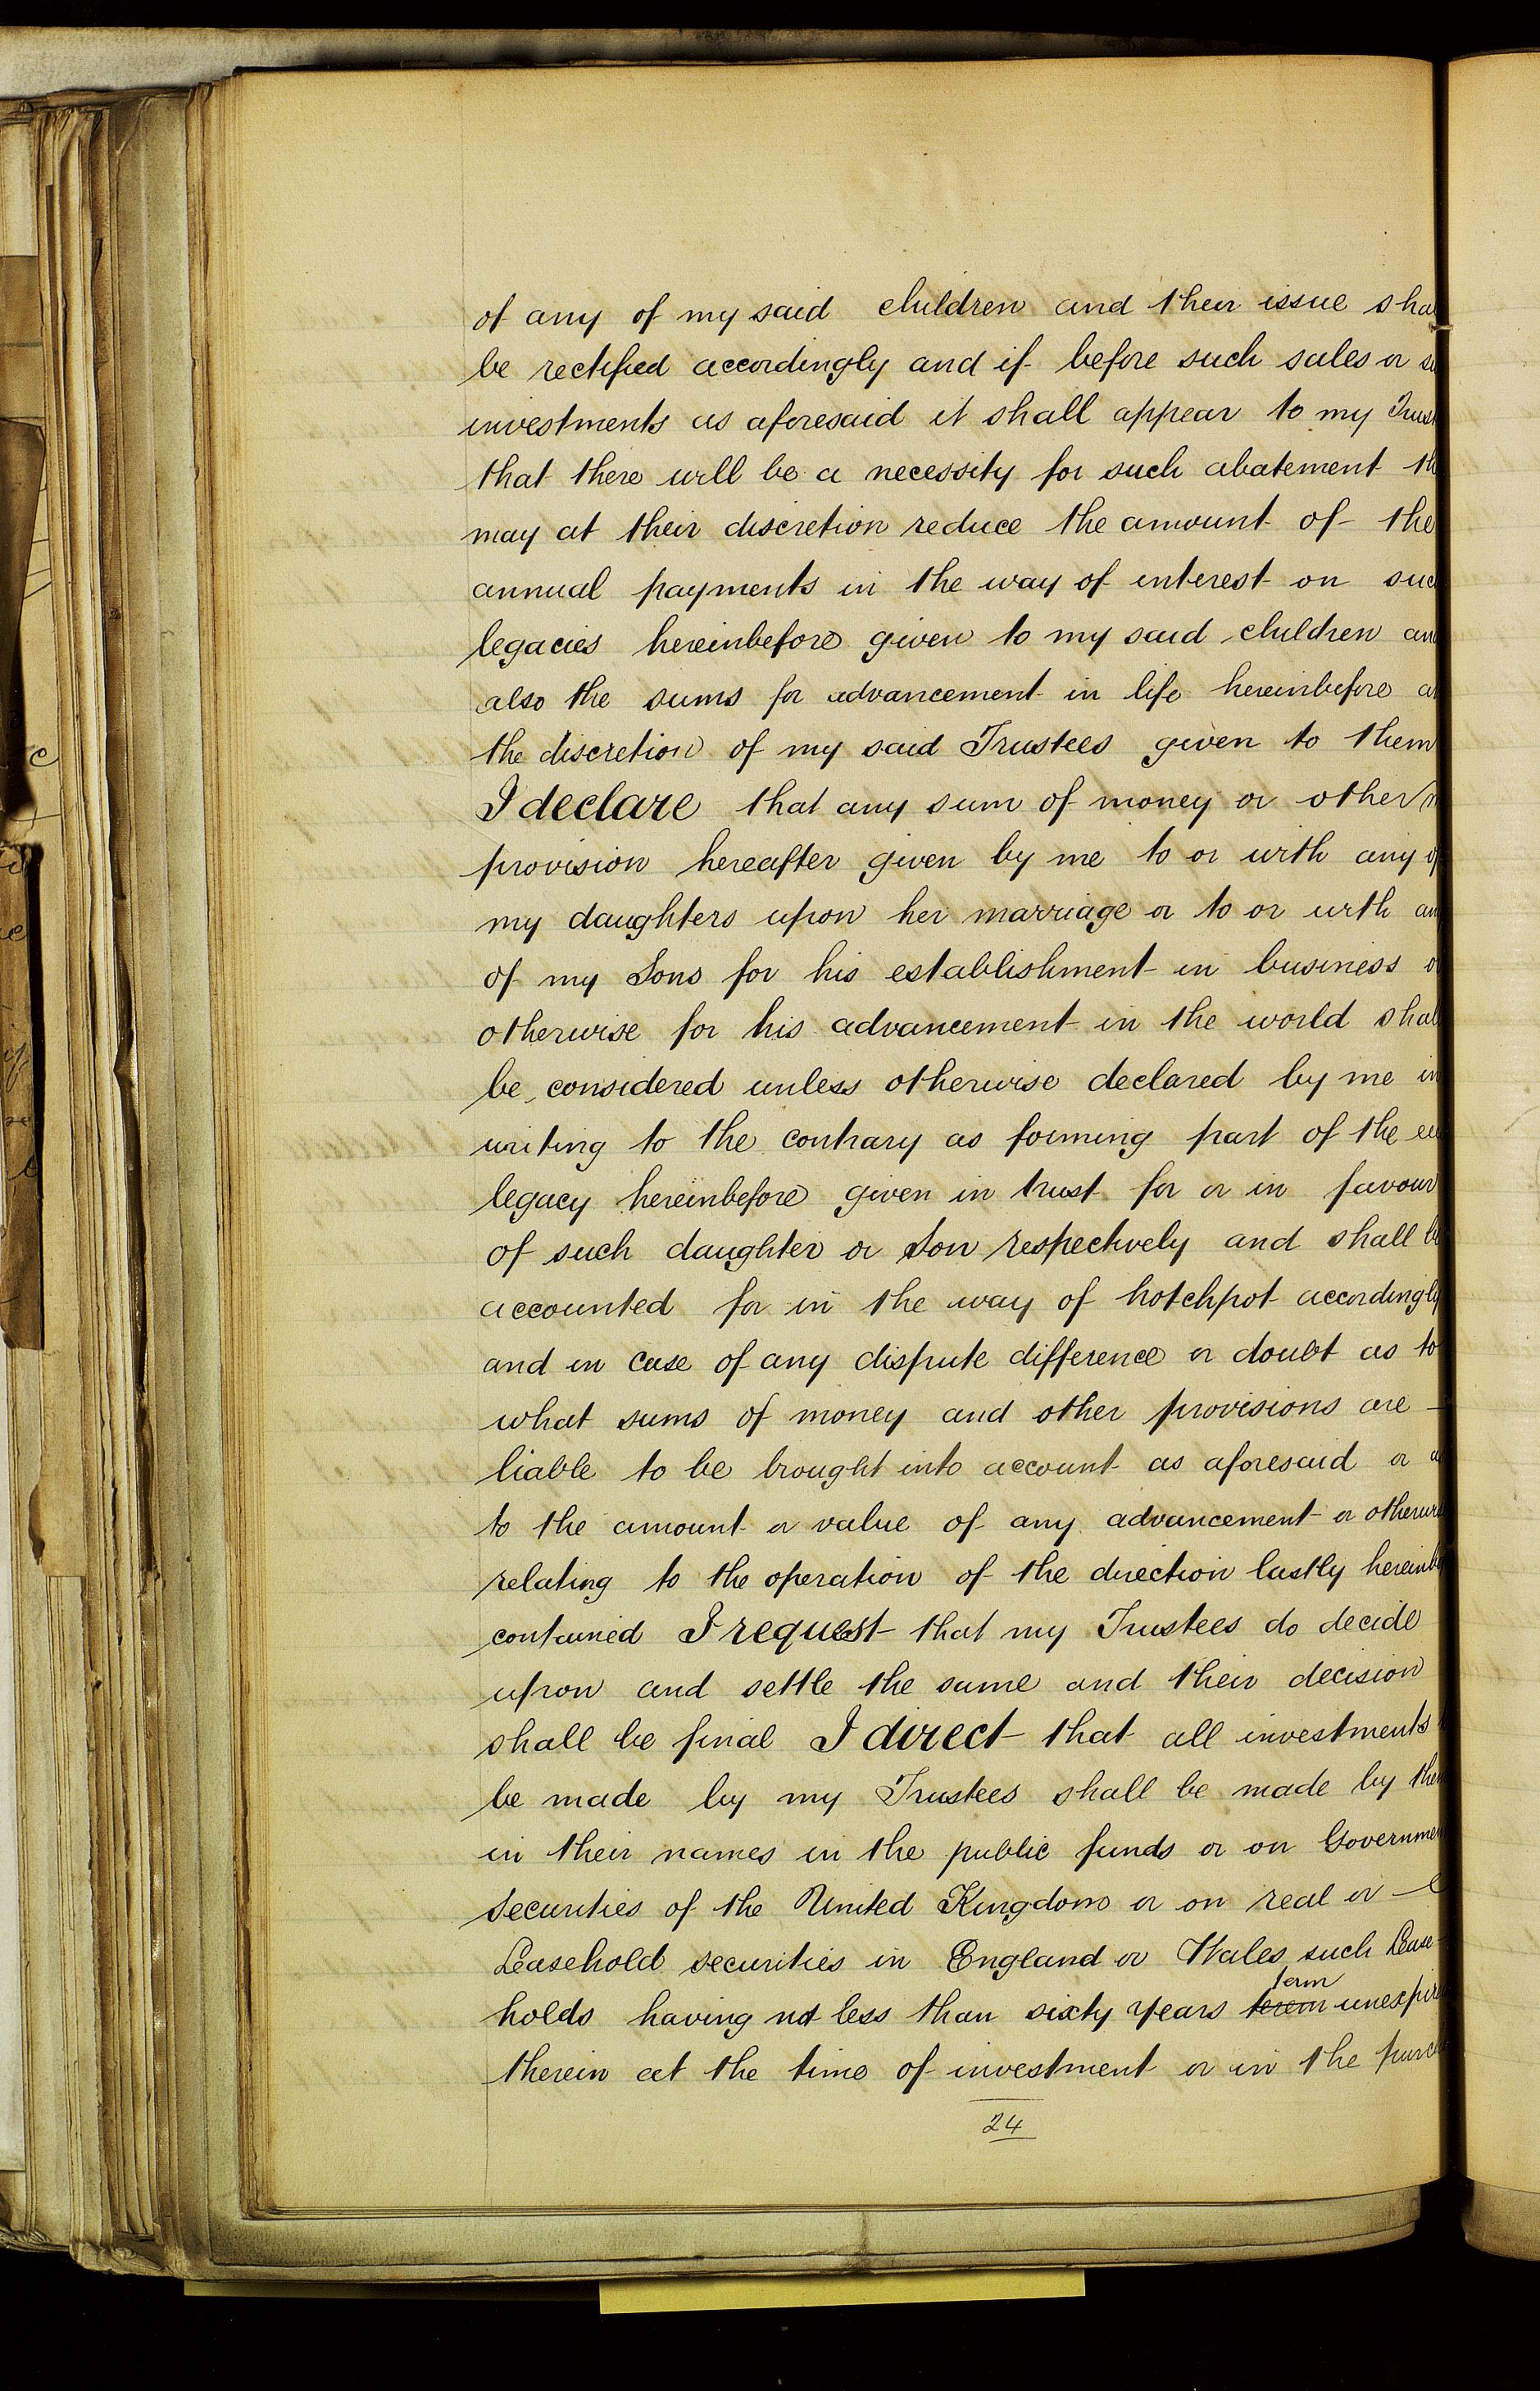 of any of my said children and their issue
be rectified accordingly and if before such sales or
investments as aforesaid it shall appear to my
that there will be a necessity for such abatement
may at their discretion reduce the amount of the
annual payments in the way of interest on
legacies hereinbefore given to my said children
also the sums for advancement in life hereinbefore
the discretion of my said Trustees given to them
I declare that any sum of money or other
provision hereafter given by me to or with any
my daughters upon her marriage or to or with
of my Sons for his establishment in business
otherwise for his advancement in the world
be considered unless otherwise declared by me in
writing to the contrary as forming part of the
legacy hereinbefore given in trust for or in favour
of such daughter or Son respectively and shall
accounted for in the way of hotchpot accordingly
and in case of any dispute difference or doubt as to
what sums of money and other provisions are
liable to be brought into account as aforesaid or
to the amount or value of any advancement or
relating to the operation of the direction lastly
contained I request that my Trustees do decide
upon and settle the same and their decision
shall be final I direct that all investments
be made by my Trustees shall be made by
in their names in the public funds or on
Securities of the United Kingdom or on real or
Leasehold securities in England or Wales such Lease-
term
holds having not less than sixty years
therein at the time of investment or in the
24